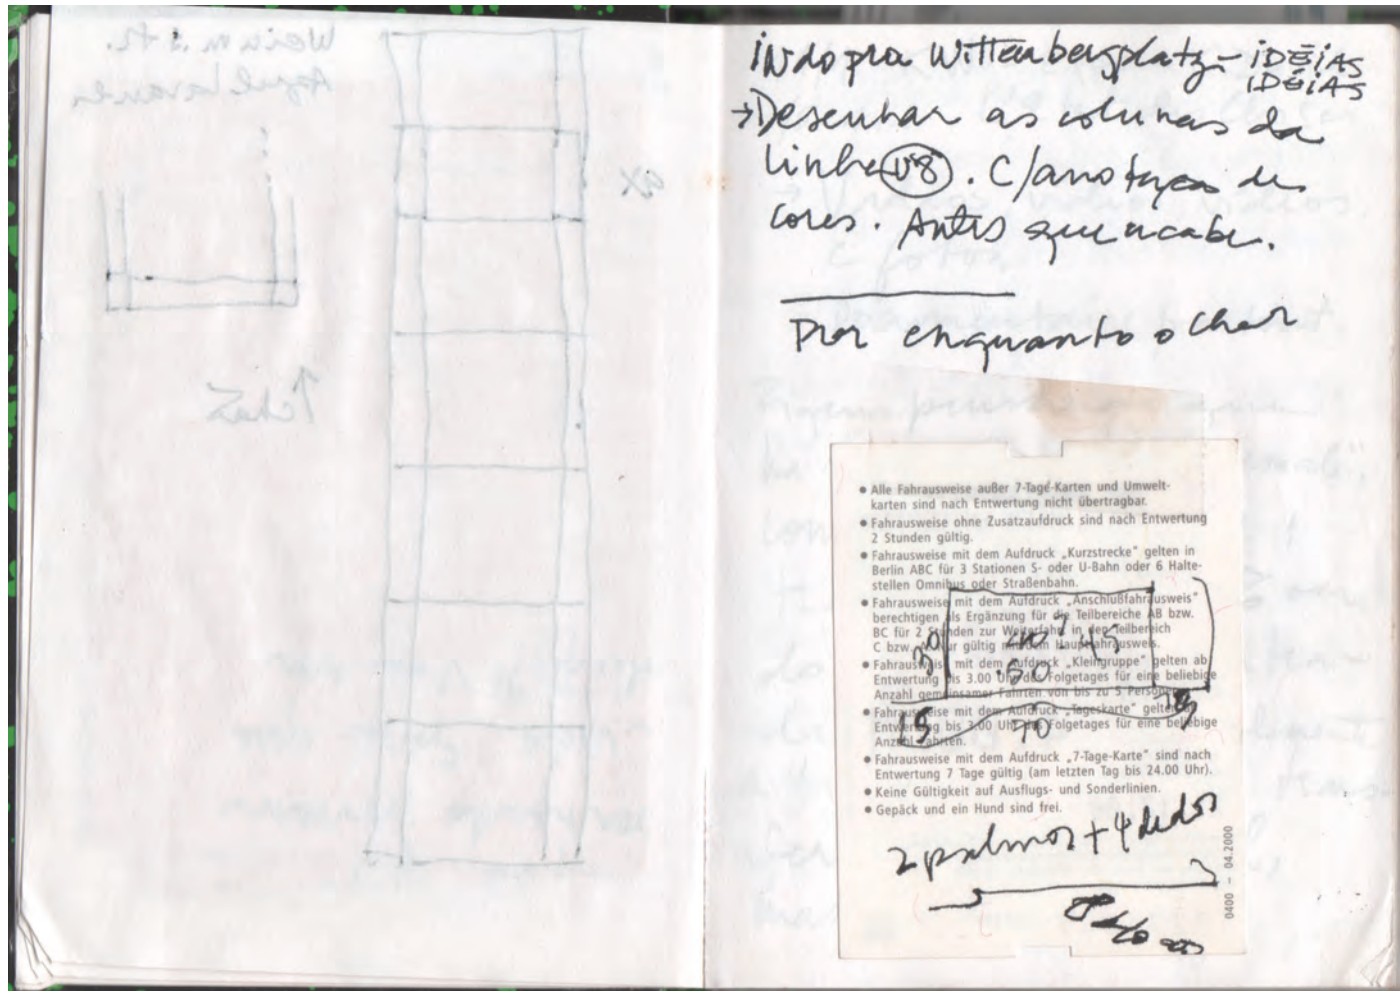 indo pra Wittenbergplatz - iDÉiAS
iDÉiAS
→ Desenhar as colunas da
linha U8. C/ anotações de
cores. Antes que acabe.
Por enquanto olhar
• Alle Fahrausweise außer 7-Tage-Karten und Umwelt-
karten sind nach Entwertung nicht übertragbar.
• Fahrausweise ohne Zusatzaufdruck sind nach Entwertung
2 Stunden gültig.
• Fahrausweise mit dem Aufdruck „Kurzstrecke" gelten in
Berlin ABC für 3 Stationen S- oder U-Bahn oder 6 Halte-
stellen Omnibus oder Straßenbahn.
• Fahrausweise mit dem Aufdruck „Anschlußfahrausweis"
berechtigen als Ergänzung für die Teilbereiche AB bzw.
BC für 2 Stunden zur Weiterfahrt in den Teilbereich
C bzw. A. Nur gültig mit dem Hauptfahrausweis.
• Fahrausweise mit dem Aufdruck „Kleingruppe" gelten ab
Entwertung bis 3.00 Uhr des Folgetages für eine beliebige
Anzahl gemeinsamer Fahrten von bis zu 5 Personen.
• Fahrausweise mit dem Aufdruck „Tageskarte" gelten ab
Entwertung bis 3.00 Uhr des Folgetages für eine beliebige
Anzahl Fahrten.
• Fahrausweise mit dem Aufdruck „7-Tage-Karte" sind nach
Entwertung 7 Tage gültig (am letzten Tag bis 24.00 Uhr).
• Keine Gültigkeit auf Ausflugs- und Sonderlinien.
• Gepäck und ein Hund sind frei.
30
40? 45
50
15 90 15
2 palmos + 4 dedos
0400 - 04.2000